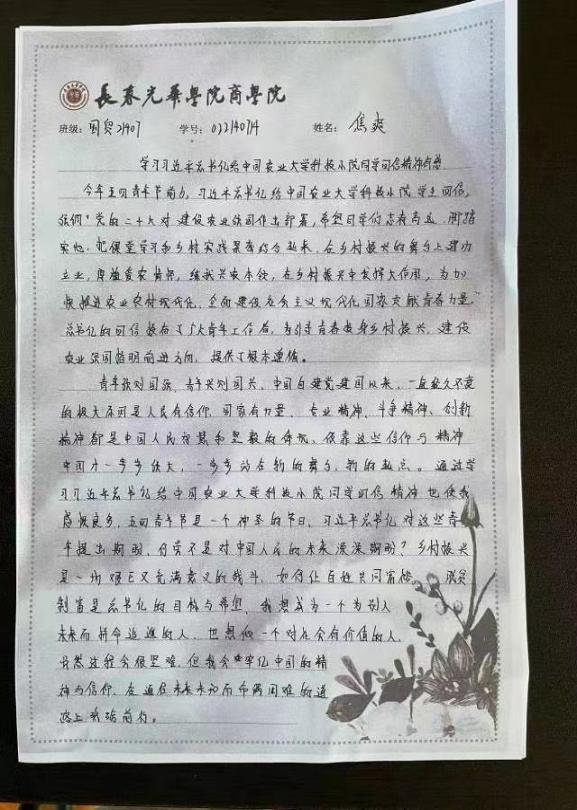 長春光華學院商學院
班级：国贸21407 学号：021140714 姓名：焦爽
学习习近平总书记给中国农业大学科技小院同学回信精神有感
今年五四青年节前夕，习近平总书记给中国农业大学科技小院学生回信，
强调"党的二十大对建设农业强国作出部署，希望同学们志存高远、脚踏
实地，把课堂学习和乡村实践紧密结合起来，在乡村振兴的舞台上建功
立业，厚植爱农情怀，练就兴农本领，在乡村振兴中发挥大作用，为加
快推进农业农村现代化、全面建设社会主义现代化国家贡献青春力量。"
总书记的回信 了广大青年工作者，为引导青春投身乡村振兴，建设
农业强国指明前进方向，提供了根本遵循。
青年强则国强，青年兴则国兴，中国自建党建国以来，一直经久不衰
的极大原因是人民有信仰，国家有力量，专业精神、斗争精神、创新
精神都是中国人民智慧和坚毅的体现，依靠这些信仰与精神
中国才一步步强大，一步步站在新的舞台，新的起点。通过学
习习近平总书记给中国农业大学科技小院同学回信精神也使我
感悟良多，五四青年节是一个神圣的节日，习近平总书记对这些青
年提出期盼，何尝不是对中国人民的未来深深期盼？乡村振兴
是一场艰巨又充满意义的战斗，如何让百姓共同富裕，脱贫
制富是总书记的目标与希望，我想成为一个为别人
未来而拼命追逐的人，也想做一个对社会有价值的人，
虽然过程会很坚难，但我会牢记中国的精
神与信仰，在追自未来未知而布满困难的道
路上砥砺前行。